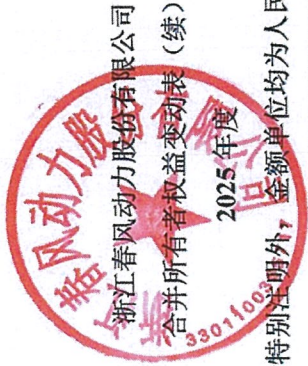 浙江春风动力股份有限公司
合并所有者权益变动表（续）
2025年度
特别注明外，金额单位均为人民
春风动力股份
33011003